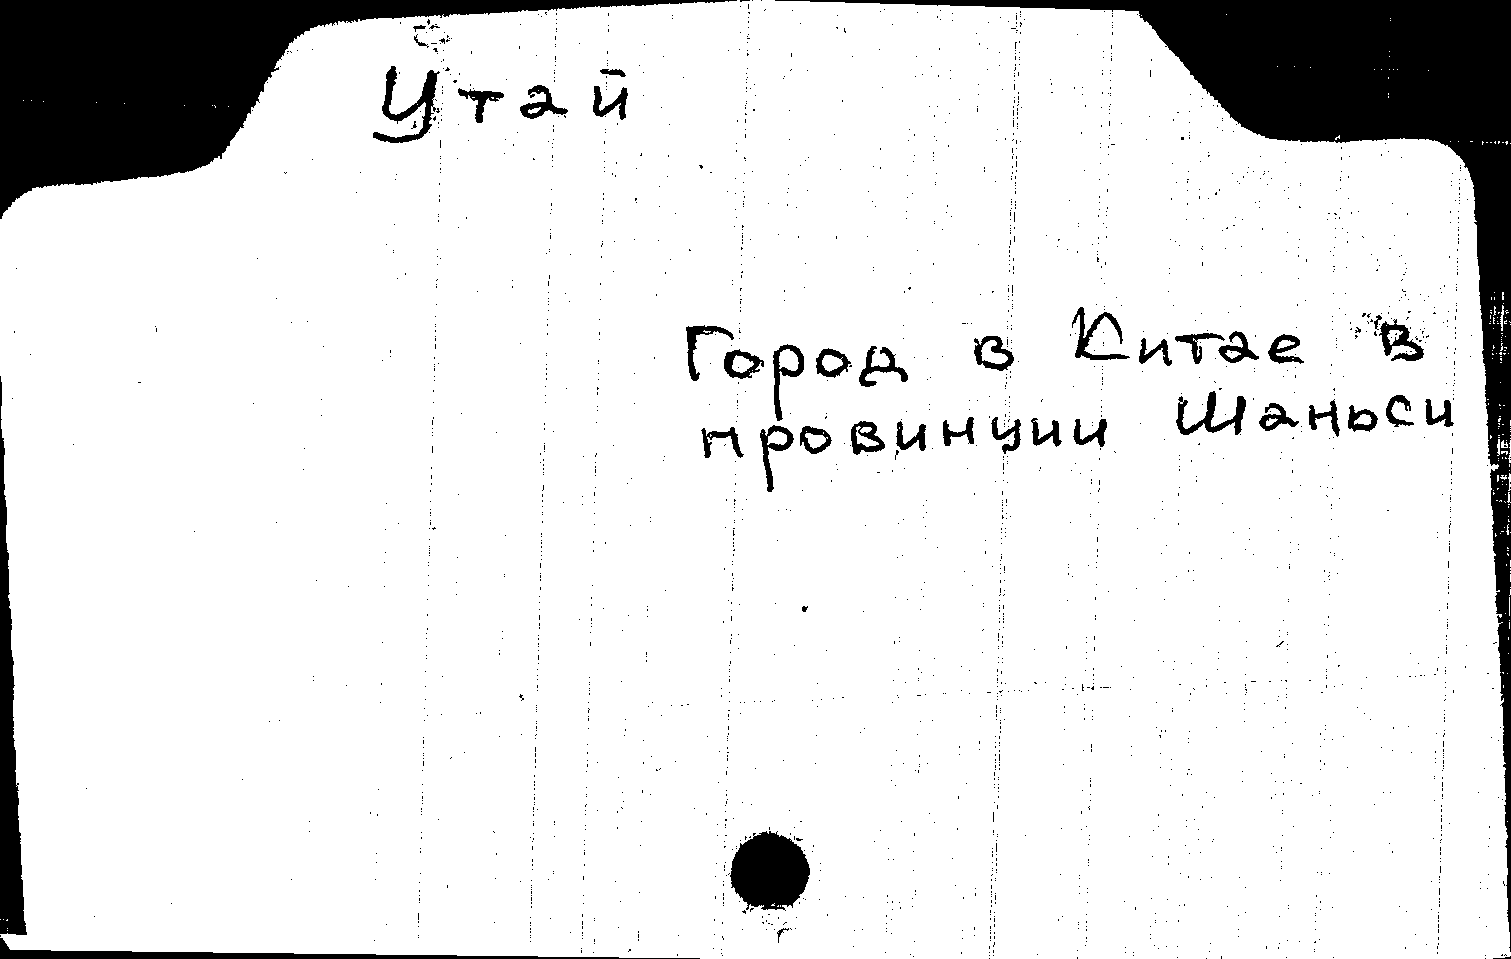 Утай
Город в Китае в
провинции Шаньси